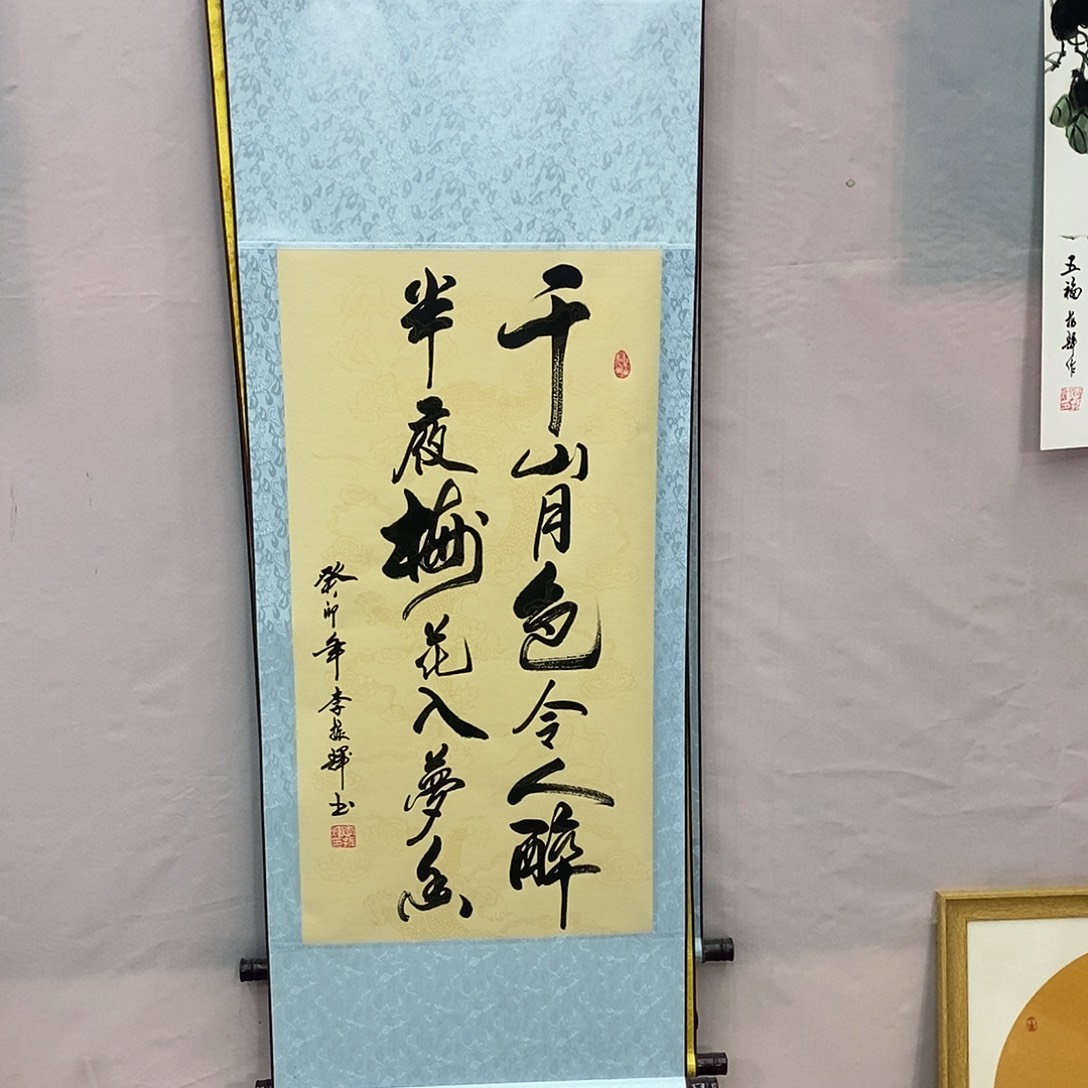 千山月色令人醉
半夜梅花入夢香
癸卯年李振輝书
五福 振輝作